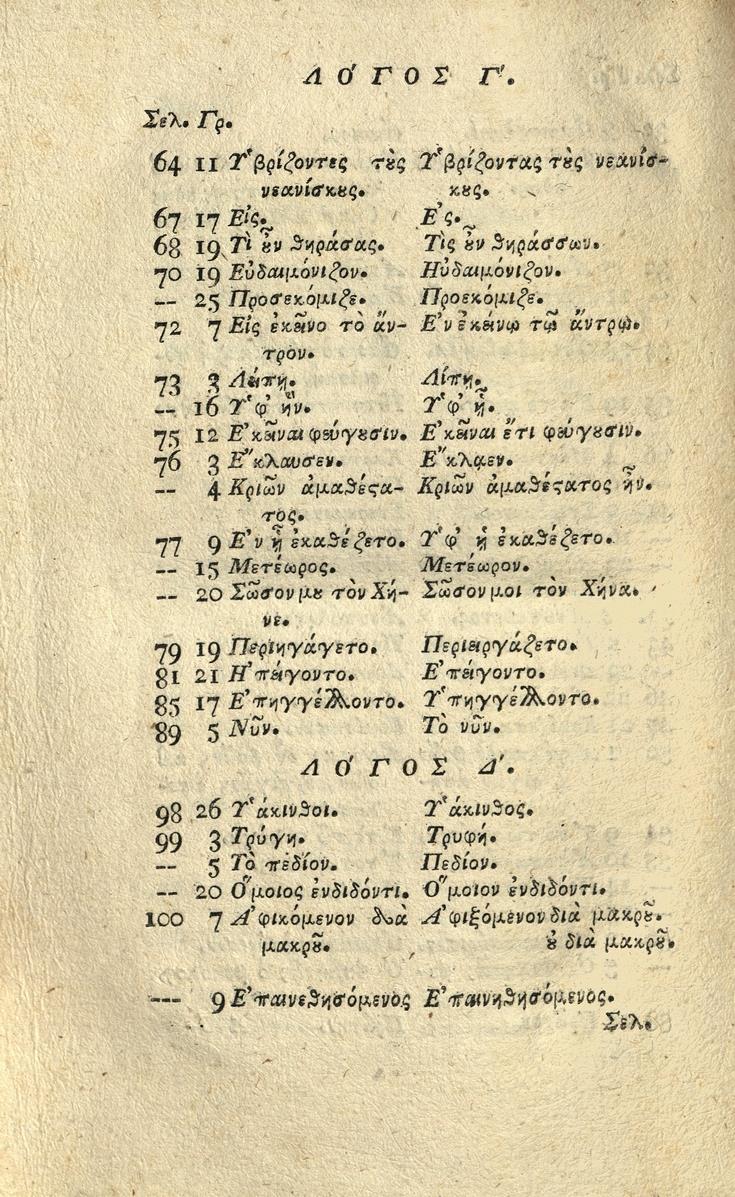 ΛΌΓΟΣ Γ΄.
Σελ. Γρ.
64 11 Ὑβρίζοντες τȣ̀ς Ὑβρίζοντας τȣ̀ς νεανίσ-
νεανίσκȣς. κȣς.
67 17 Εἰς. Ἐς.
68 19 Τὶ ȣ̓͂ν θηράσας. Τὶς ȣ̓͂ν θηράσσων.
70 19 Εὐδαιμόνιζον. Ηὐδαιμόνιζον.
-- 25 Προσεκόμιζε. Προεκόμιζε.
72 7 Εἰς ἐκεῖνο τὸ ἄν- Ἐν ἐκείνῳ τῷ ἄντρῳ.
τρον.
73 3 Λείπη. Λίπη.
-- 16 Ὑφ' ἣν. Ὑφ' ᾗ.
75 12 Ἐκεῖναι φεύγȣσιν. Ἐκεῖναι ἔτι φεύγȣσιν.
76 3 Ἔκλαυσεν. Ἔκλαεν.
-- 4 Κριῶν ἀμαθέϛα- Κριῶν ἀμαθέϛατος ἦν.
τος.
77 9 Ἐν ᾗ ἐκαθέζετο. Ὑφ' ᾗ ἐκαθέζετο.
-- 15 Μετέωρος. Μετέωρον.
-- 20 Σῶσον μȣ τὸν Χή- Σῶσον μοι τὸν Χῆνα.
νε.
79 19 Περιηγάγετο. Περιειργάζετο.
81 21 Ἠπείγοντο. Ἐπείγοντο.
85 17 Ἐπηγγέλλοντο. Ὑπηγγέλλοντο.
89 5 Νῦν. Τὸ νῦν.
ΛΌΓΟΣ Δ΄.
98 26 Ὑάκινθοι. Ὑάκινθος.
99 3 Τρύγη. Τρυφή.
-- 5 Τὸ πεδίον. Πεδίον.
-- 20 Ὅμοιος ἐνδιδόντι. Ὅμοιον ἐνδιδόντι.
100 7 Ἀφικόμενον διὰ Ἀφιξόμενον διὰ μακρȣ͂.
μακρȣ͂. ȣ διὰ μακρȣ͂.
--- 9 Ἐπαινεθησόμενος Ἐπαινηθησόμενος.
Σελ.